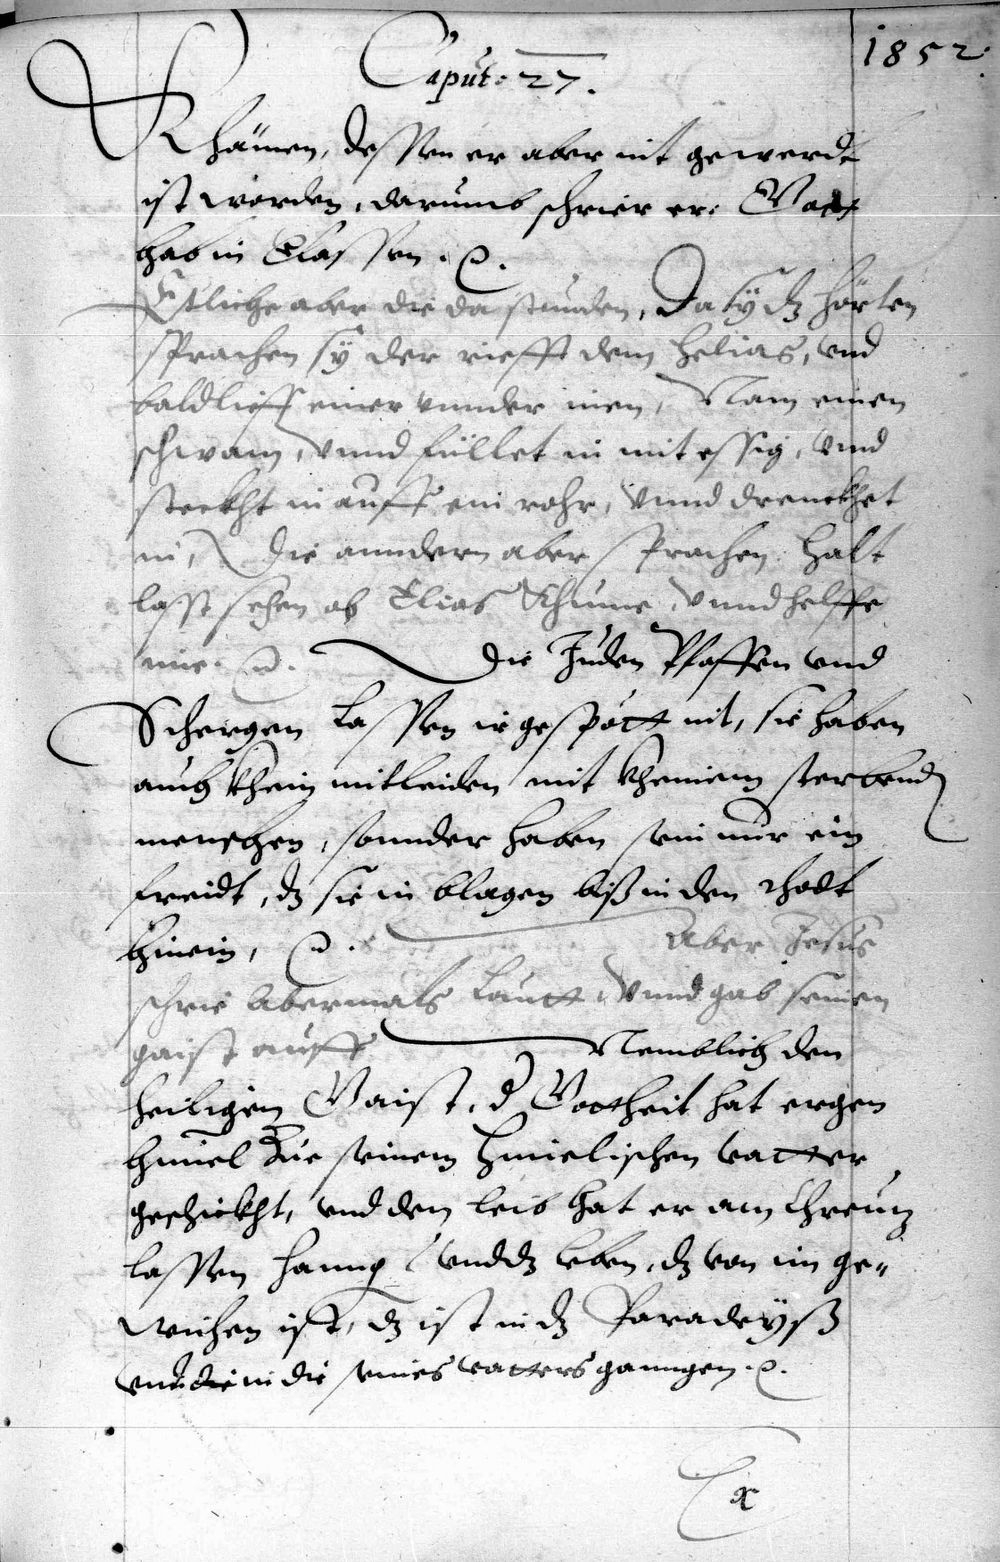 Caput: 27. 1852.
Khämen, dessen er aber nit gewerdt
ist worden, darumb schrier er: Gott
hab in Elassen. ⁊c.
Etliche aber die da stunden, Da sÿ dz hörten
sprachen sÿ der riefft dem Helias, vnd
baldlieff einer vnnder inen, Nam einen
schwam, vnnd füllet in mit essig, vnd
steckht in auff ein rohr, vnnd drenckhet
in, Die anndern aber sprachen: halt
lasst sehen ob Elias Khume, vnnd helffe
ime. ⁊c. Die Juden Pfaffen vnd
Schergen Lassen ir gespött nit, sie haben
auch khein mitleiden mit kheinem sterbend
menschen, sonnder haben sein nur ein
freidt, dz sie in blagen biß in den thodt
hinein, ⁊c. Aber Jesus
schrie Abermals Lautt, Vnnd gab seinen
gaist auff Nemblich den
heiligen Gaist, d Gottheit hat er gen
himel Zue seinem himelischen vatter
geschickht, vnd den leib hat er am Chreutz
lassen hanng vnd dz leben, dz von im ge-
wichen ist, dz ist in dz Paradeÿß
vnd in die seines vatters ganngen. ⁊c.
Ex